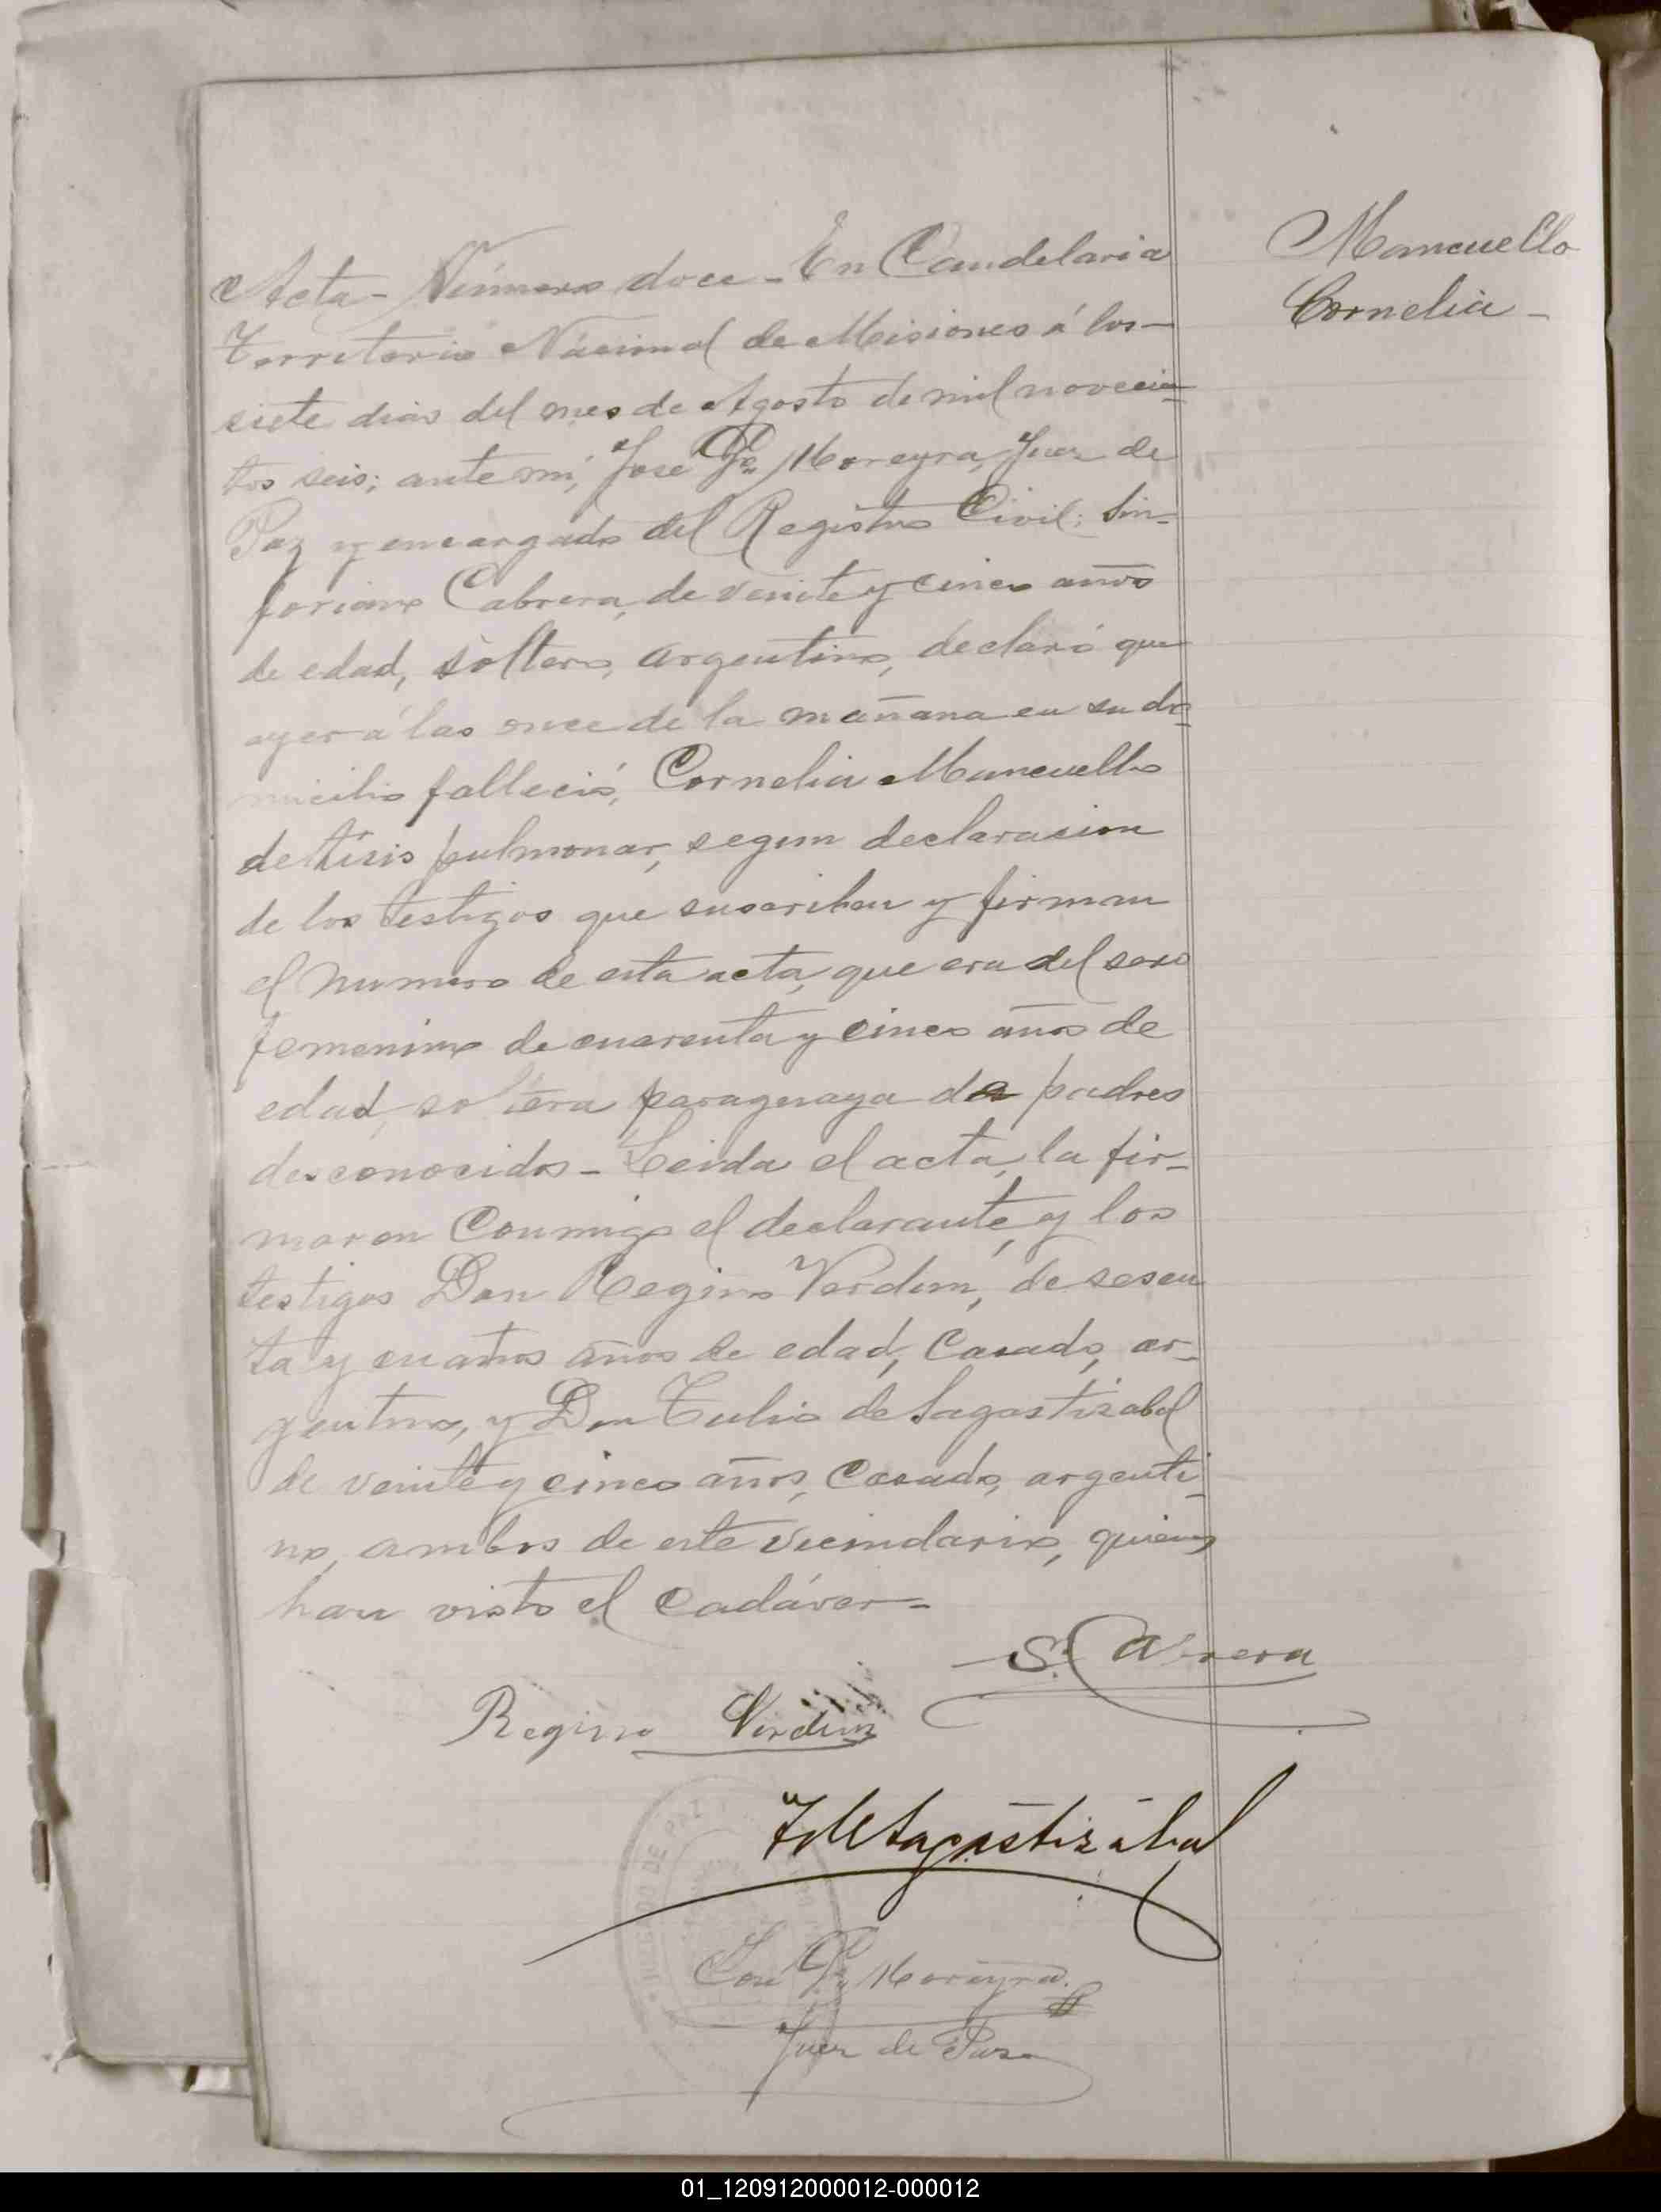 Mancuello
Cornelia -
Acta - Número doce - En Candelaria
Territorio Nacional de Misiones á los -
siete dias del mes de Agosto de mil novecien=
tos seis; ante mi, José Moreyra, Juez de
Paz y encargado del Registro Civil: Sin=
foriano Cabrera, de veinte y cinco años
de edad, soltero, argentino, declaró que
ayer á las once de la mañana en su do=
micilio falleció, Cornelia Mancuello
de tísis pulmonar, segun declaracion
de los testigos que suscriben y firman
el numero de esta acta, que era del sexo
femenino de cuarenta y cinco años de
edad, soltera paraguaya de padres
desconocidos - Leida el acta, la fir=
maron conmigo el declarante, y los
testigos Don Regino Verdun, de sesen
ta y cuatro años de edad, casado, ar=
gentino, y Don Tulio de Sagastizabal
de veinte y cinco años, casado, argenti=
no, ambos de este vecindario, quienes
han visto el cadáver =
S. Cabrera
Regino Verdun
T de Sagastizábal
José Moreyra
Juez de Paz
JUZGADO DE PAZ
01_120912000012-000012